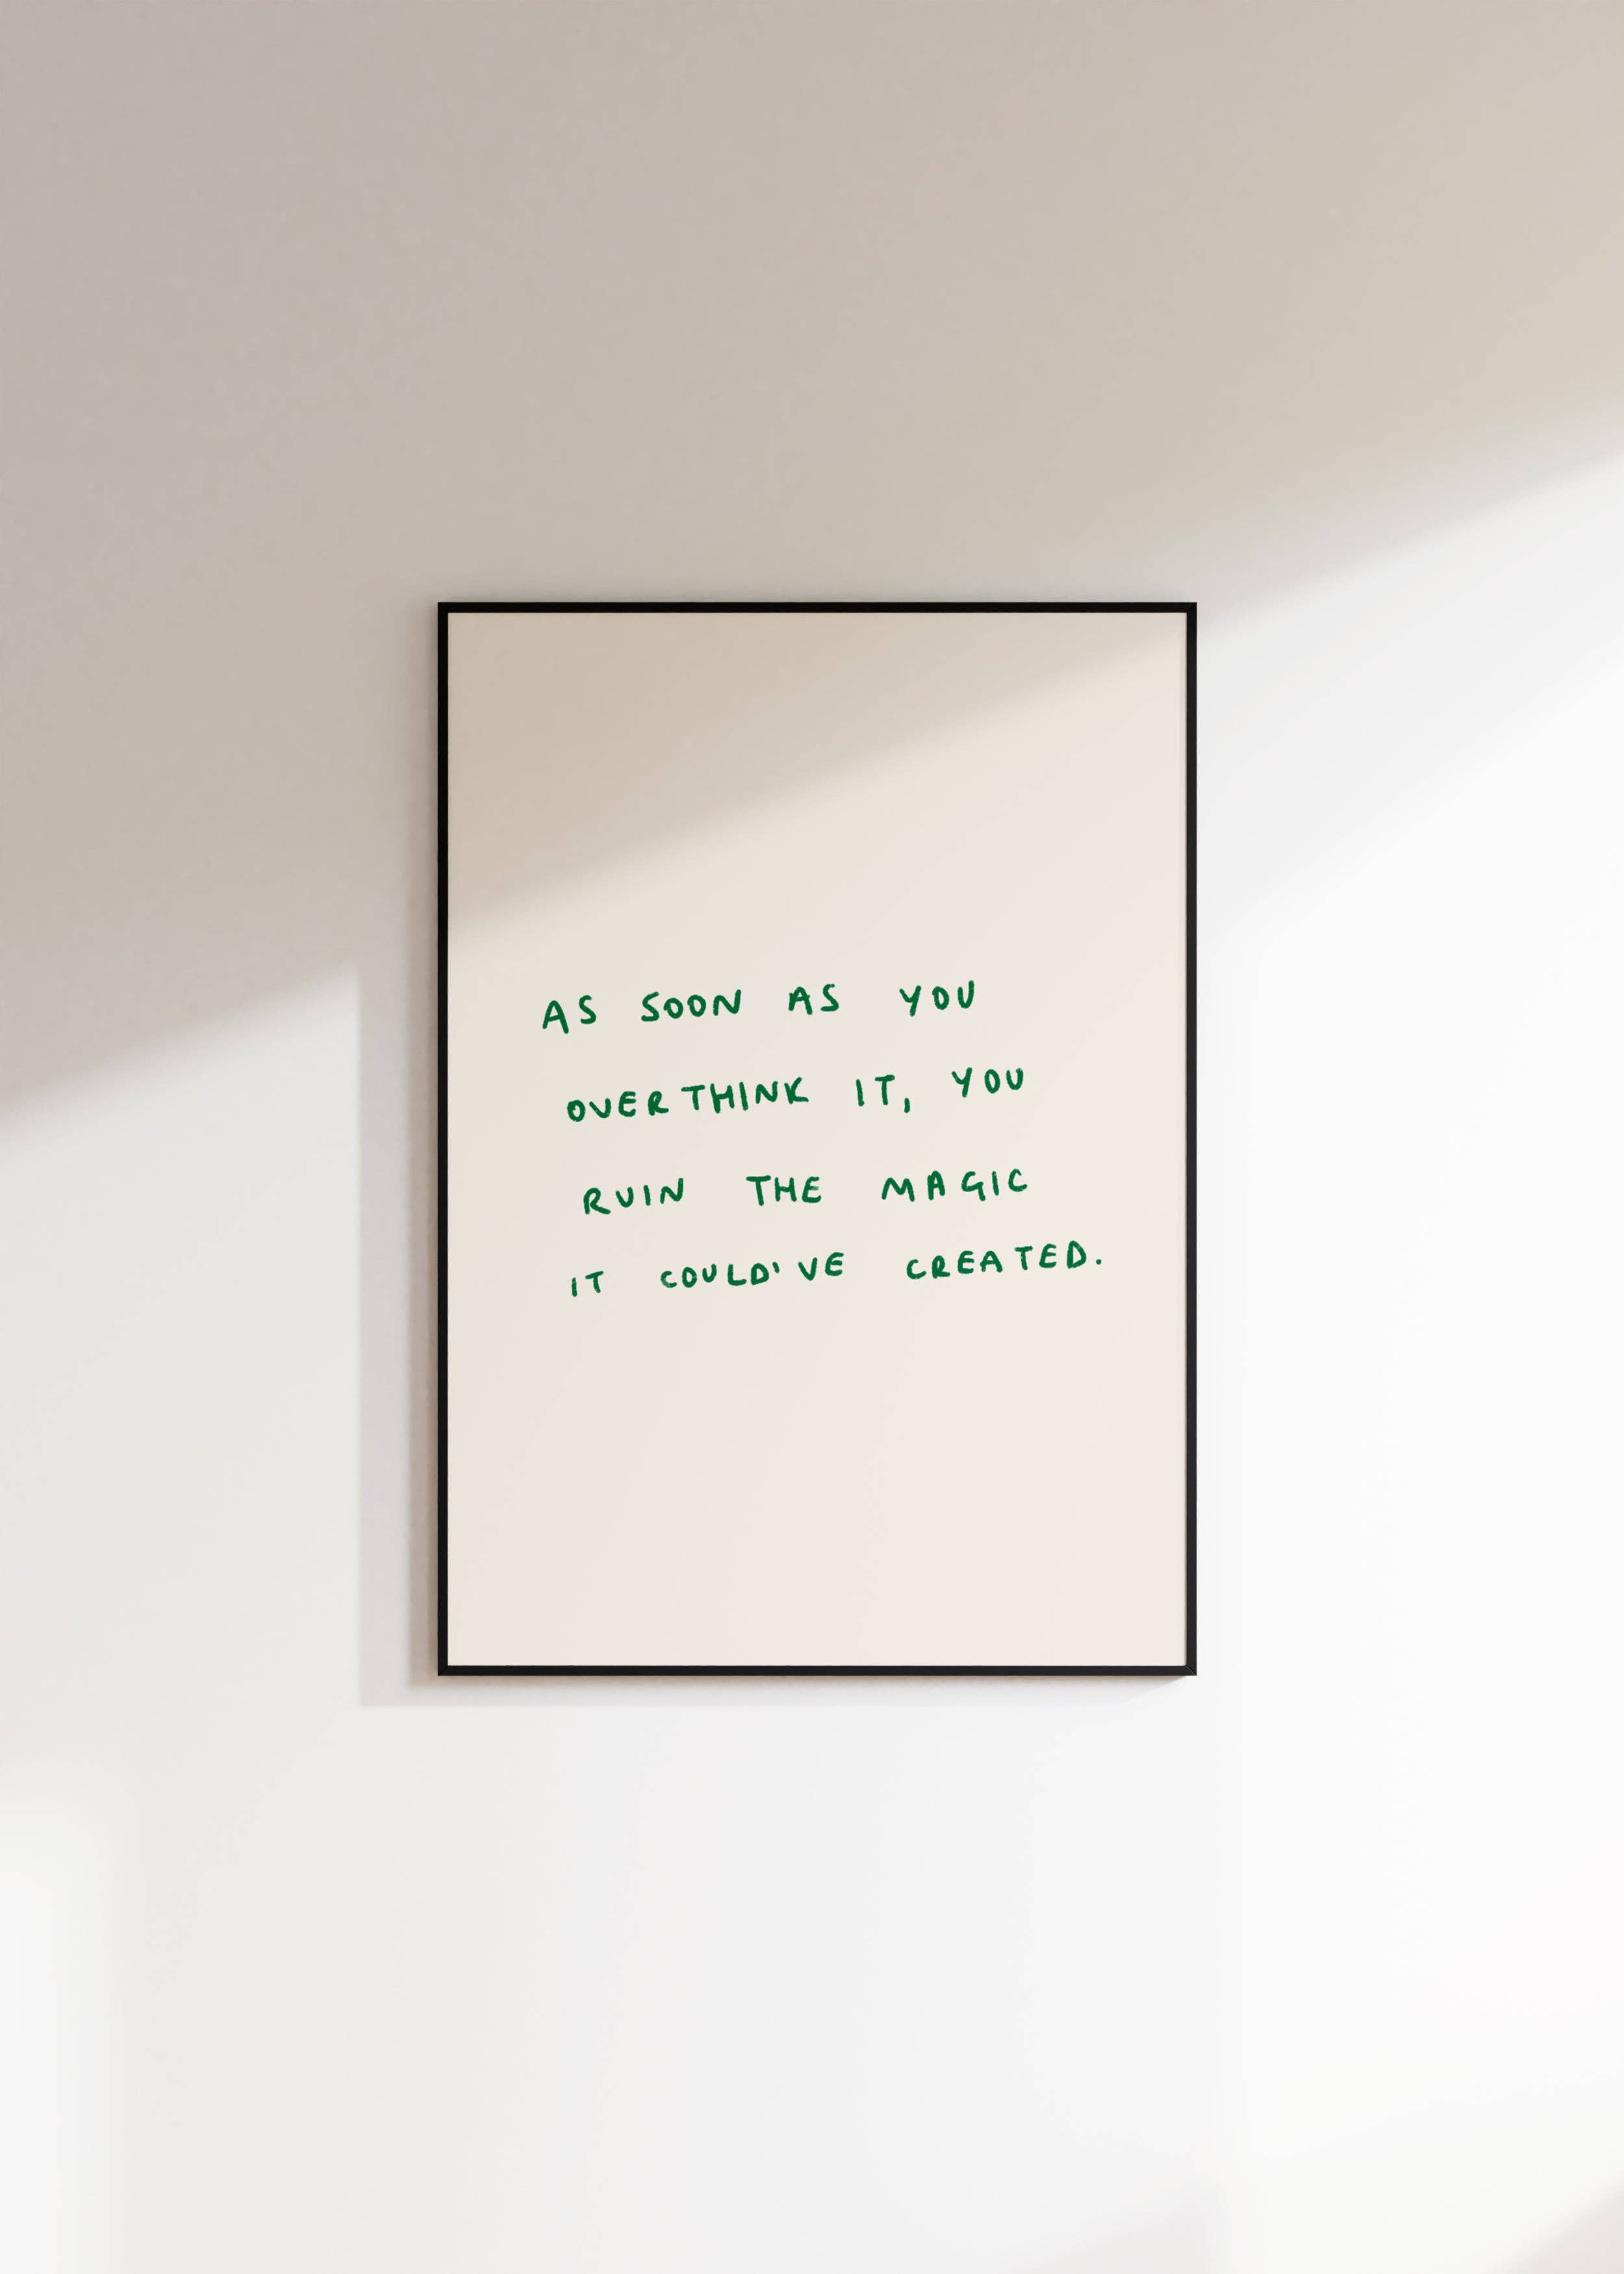 AS SOON AS YOU
OVERTHINK IT, YOU
RUIN THE MAGIC
IT COULD'VE CREATED.